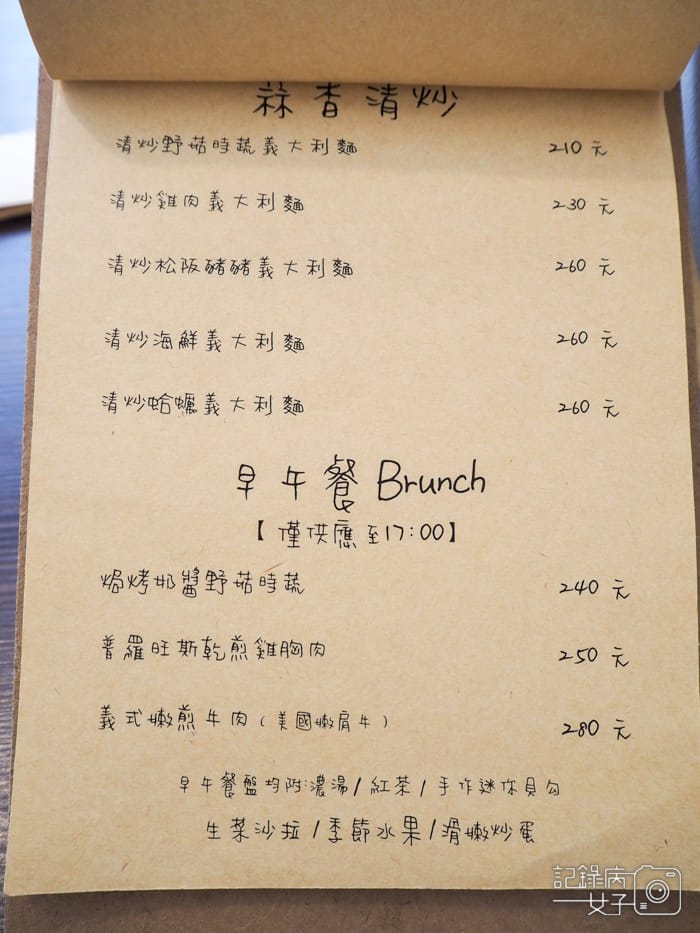 蒜香清炒
清炒野菇時蔬義大利麵 210 元
清炒雞肉義大利麵 230 元
清炒松阪豬豬義大利麵 260 元
清炒海鮮義大利麵 260 元
清炒蛤蠣義大利麵 260 元
早午餐 Brunch
【 僅供應至17:00】
焗烤奶醬野菇時蔬 240 元
普羅旺斯乾煎雞胸肉 250 元
義式嫩煎牛肉（美國嫩肩牛） 280 元
早午餐盤均附:濃湯/紅茶/手作迷你貝勾
生菜沙拉/季節水果/滑嫩炒蛋
記錄病
女子